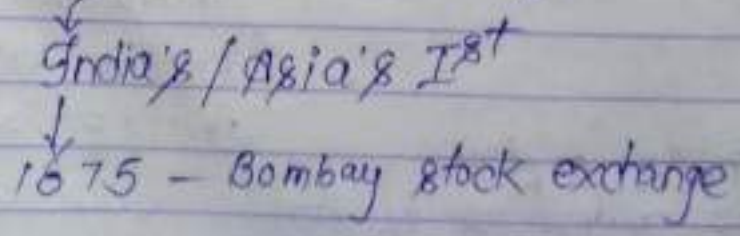 India's / Asia's Ist
1875 - Bombay stock exchange